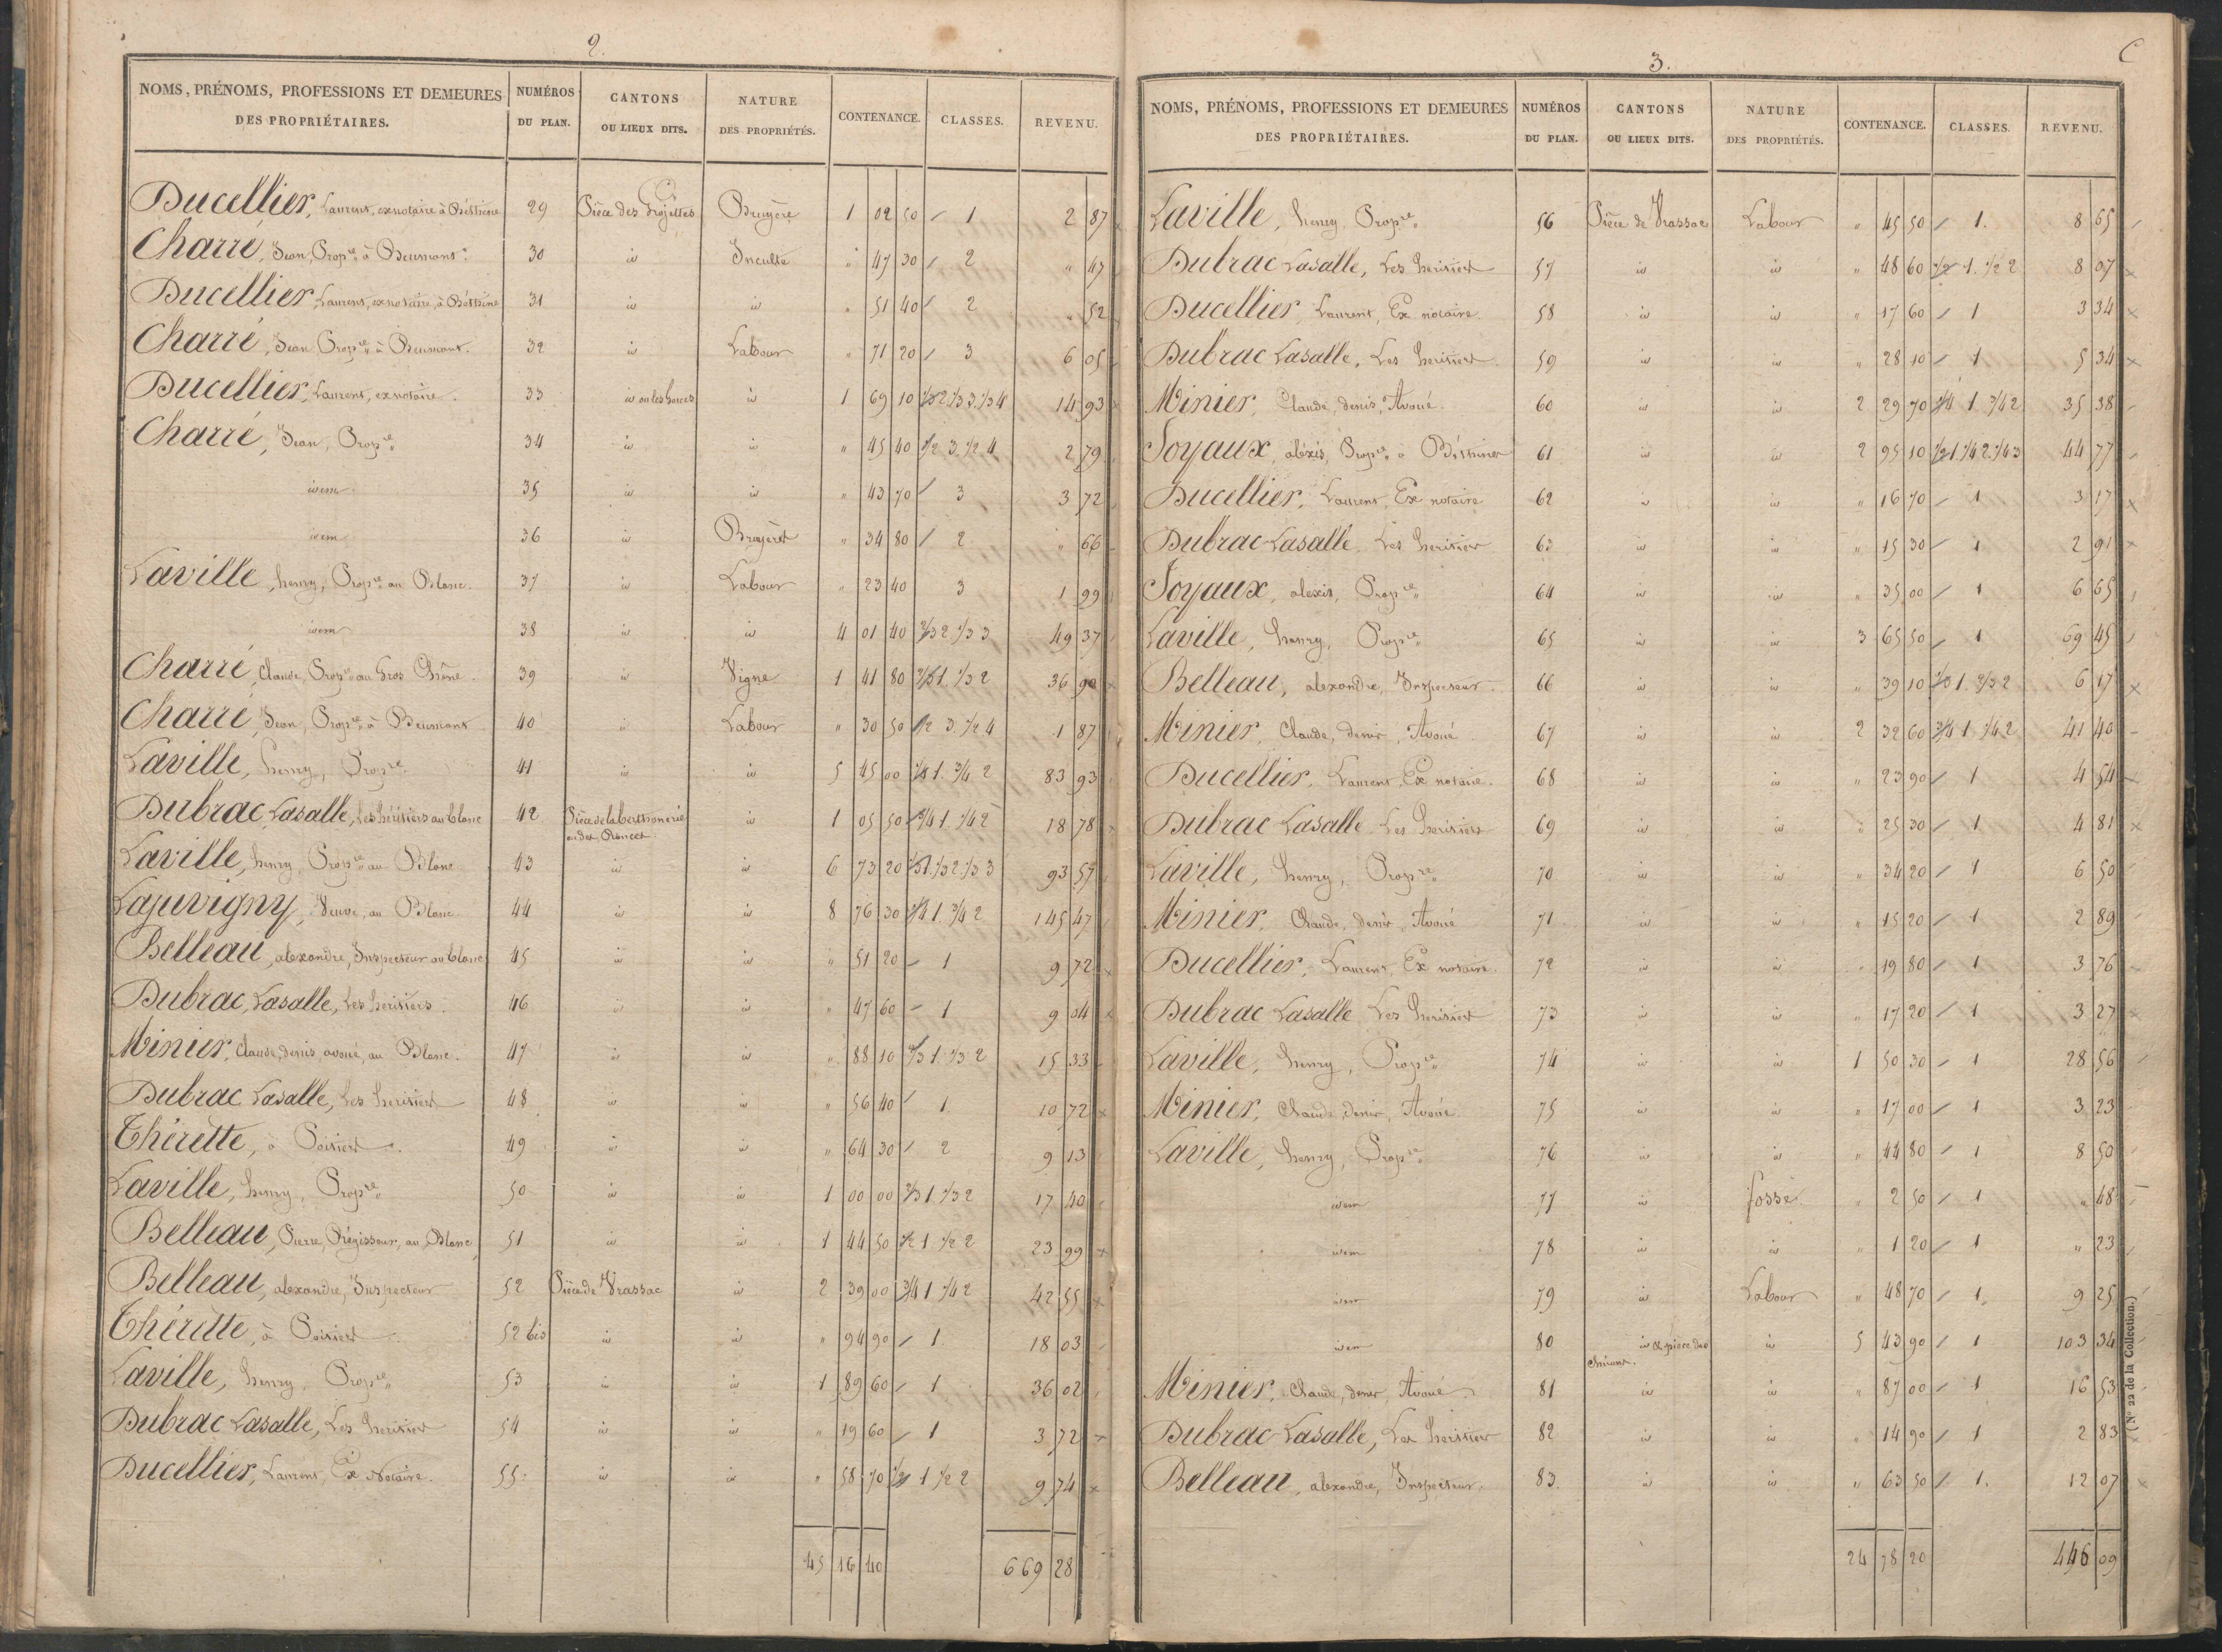 2.
NOMS, PRÉNOMS, PROFESSIONS ET DEMEURES DES PROPRIÉTAIRES. NUMÉROS DU PLAN. CANTONS OU LIEUX DITS. NATURE DES PROPRIÉTÉS. CONTENANCE. CLASSES. REVENU.
Ducellier, Laurent, exnotaire à 29 Pièce des Bruyère 1 02 50 1 2 87
Charré, Jean, Propre à Beumont 30 id Inculte " 47 30 2 " 47
Ducellier, Laurent, exnotaire, à 31 id id " 51 40 2 " 52
Charré, Jean, Propre à Beumont. 32 id Labour " 71 20 3 6 05
Ducellier, Laurent, exnotaire. 33 id ou les id 1 69 10 1/3 2. 1/3 3. 1/3 4 14 93
Charré, Jean, Propre 34 id id " 45 40 1/2 3. 1/2 4 2 79
idem 35 id id " 43 70 3 3 72
idem 36 id Bruyère " 34 80 2 " 66
Laville, henry, Propre au Blanc. 37 id Labour " 23 40 3 1 99
idem 38 id id 4 01 40 2/3 2 1/3 3 49 37
Charré, Claude, Propre au Gros Chêne. 39 id Vigne 1 41 80 2/3 1. 1/3 2 36 90
Charré, Jean, Propre à Beumont 40 id Labour " 30 50 1/2 3. 1/2 4 1 87
Laville, henry, Propre 41 id id 5 45 00 1/4 1. 3/4 2 83 93
Dubrac Lasalle, Les héritiers au blanc 42 Pièce de la berthonerie ou des Ronces id 1 05 50 3/4 1. 1/4 2 18 78
Laville, henry, Propre au Blanc 43 id id 6 73 20 1/3 1. 1/3 2. 1/3 3 93 57
Lajuvigny, Veuve, au Blanc 44 id id 8 76 30 1/4 1. 3/4 2 145 47
Belleau, alexandre, Inspecteur au blanc 45 id id " 51 20 1 9 72
Dubrac, Lasalle, Les heritiers 46 id id " 47 60 1 9 04
Minier, Claude, denis, avoué, au Blanc. 47 id id " 88 10 2/3 1. 1/3 2 15 33
Dubrac Lasalle, Les heritiers 48 id id " 56 40 1. 10 72
Thérette, à Poitiers 49 id id " 64 30 2 9 13
Laville, henry, Propre 50 id id 1 00 00 2/3 1. 1/3 2 17 40
Belleau, Pierre, Régisseur, au Blanc 51 id id 1 44 50 1/2 1 1/2 2 23 99
Belleau, alexandre, Inspecteur 52 Pièce de Vrassac id 2 39 00 3/4 1 1/4 2 42 55
Thérette, à Poitiers 52 bis id id " 94 90 1. 18 03
Laville, henry, Propre 53 id id 1 89 60 1 36 02
Dubrac Lasalle, Les heritiers 54 id id " 19 60 1 3 72
Ducellier, Laurent, Ex Notaire. 55 id id " 58 70 1/2 1 1/2 2 9 74
45 16 40 669 28
3.
C
NOMS, PRÉNOMS, PROFESSIONS ET DEMEURES DES PROPRIÉTAIRES. NUMÉROS DU PLAN. CANTONS OU LIEUX DITS. NATURE DES PROPRIÉTÉS. CONTENANCE. CLASSES. REVENU.
Laville, henry, Propre 56 Pièce de Vrassac Labour " 45 50 1. 8 65
Dubrac Lasalle, Les heritiers 57 id id " 48 60 1/2 1. 1/2 2 8 07
Ducellier, Laurent, Ex notaire. 58 id id " 17 60 1 3 34
Dubrac Lasalle, Les heritiers 59 id id " 28 10 1 5 34
Minier, Claude, denis, Avoué. 60 id id 2 29 70 1/4 1 3/4 2 35 38
Joyaux, alexis, Propre à 61 id id 2 95 10 1/2 1. 1/4 2. 1/4 3 44 77
Ducellier, Laurent, Ex notaire 62 id id " 16 70 1 3 17
Dubrac Lasalle, Les heritiers 63 id id " 15 30 1 2 91
Joyaux, alexis, Propre 64 id id " 35 00 1 6 65
Laville, henry, Propre 65 id id 3 65 50 1 69 45
Belleau, alexandre, Inspecteur. 66 id id " 39 10 1/3 1. 2/3 2 6 17
Minier, Claude, denis, Avoué 67 id id 2 32 60 3/4 1 1/4 2 41 40
Ducellier, Laurent, Ex notaire. 68 id id " 23 90 1 4 54
Dubrac Lasalle Les heritiers 69 id id " 25 30 1 4 81
Laville, henry, Propre 70 id id " 34 20 1 6 50
Minier, Claude, denis, Avoué 71 id id " 15 20 1 2 89
Ducellier, Laurent, Ex notaire. 72 id id " 19 80 1 3 76
Dubrac Lasalle Les heritiers 73 id id " 17 20 1 3 27
Laville, henry, Propre 74 id id 1 50 30 1 28 56
Minier, Claude, denis, Avoué 75 id id " 17 00 1 3 23
Laville, henry, Propre 76 id id " 44 80 1 8 50
idem 77 id fossé " 2 50 1 " 48
idem 78 id id " 1 20 1 " 23
idem 79 id Labour " 48 70 1. 9 25
idem 80 id & pièce des id 5 43 90 1 103 34
Minier, Claude, denis, Avoué 81 id id " 87 00 1 16 53
Dubrac Lasalle, Les heritiers 82 id id " 14 90 1 2 83
Belleau, alexandre, Inspecteur, 83. id id " 63 50 1. 12 07
24 78 20 446 09
(N° 22 de la Collection.)